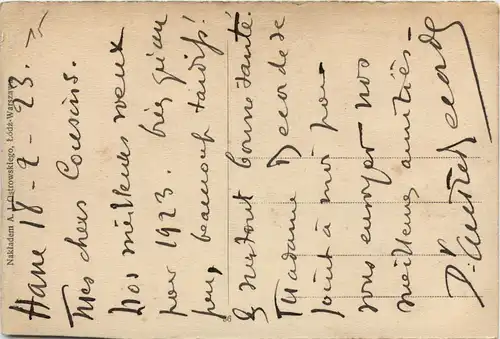 18-2-23.
Mes chers Cousins.
Nos meilleurs vœux
pour 1923. bien
peu, beaucoup tardifs!
& surtout bonne santé.
Madame Decorde se
joint à moi pour
vous envoyer nos
meilleures amitiés -
Dr.
Nakładem A. J. Ostrowskiego, Łódź-Warszawa